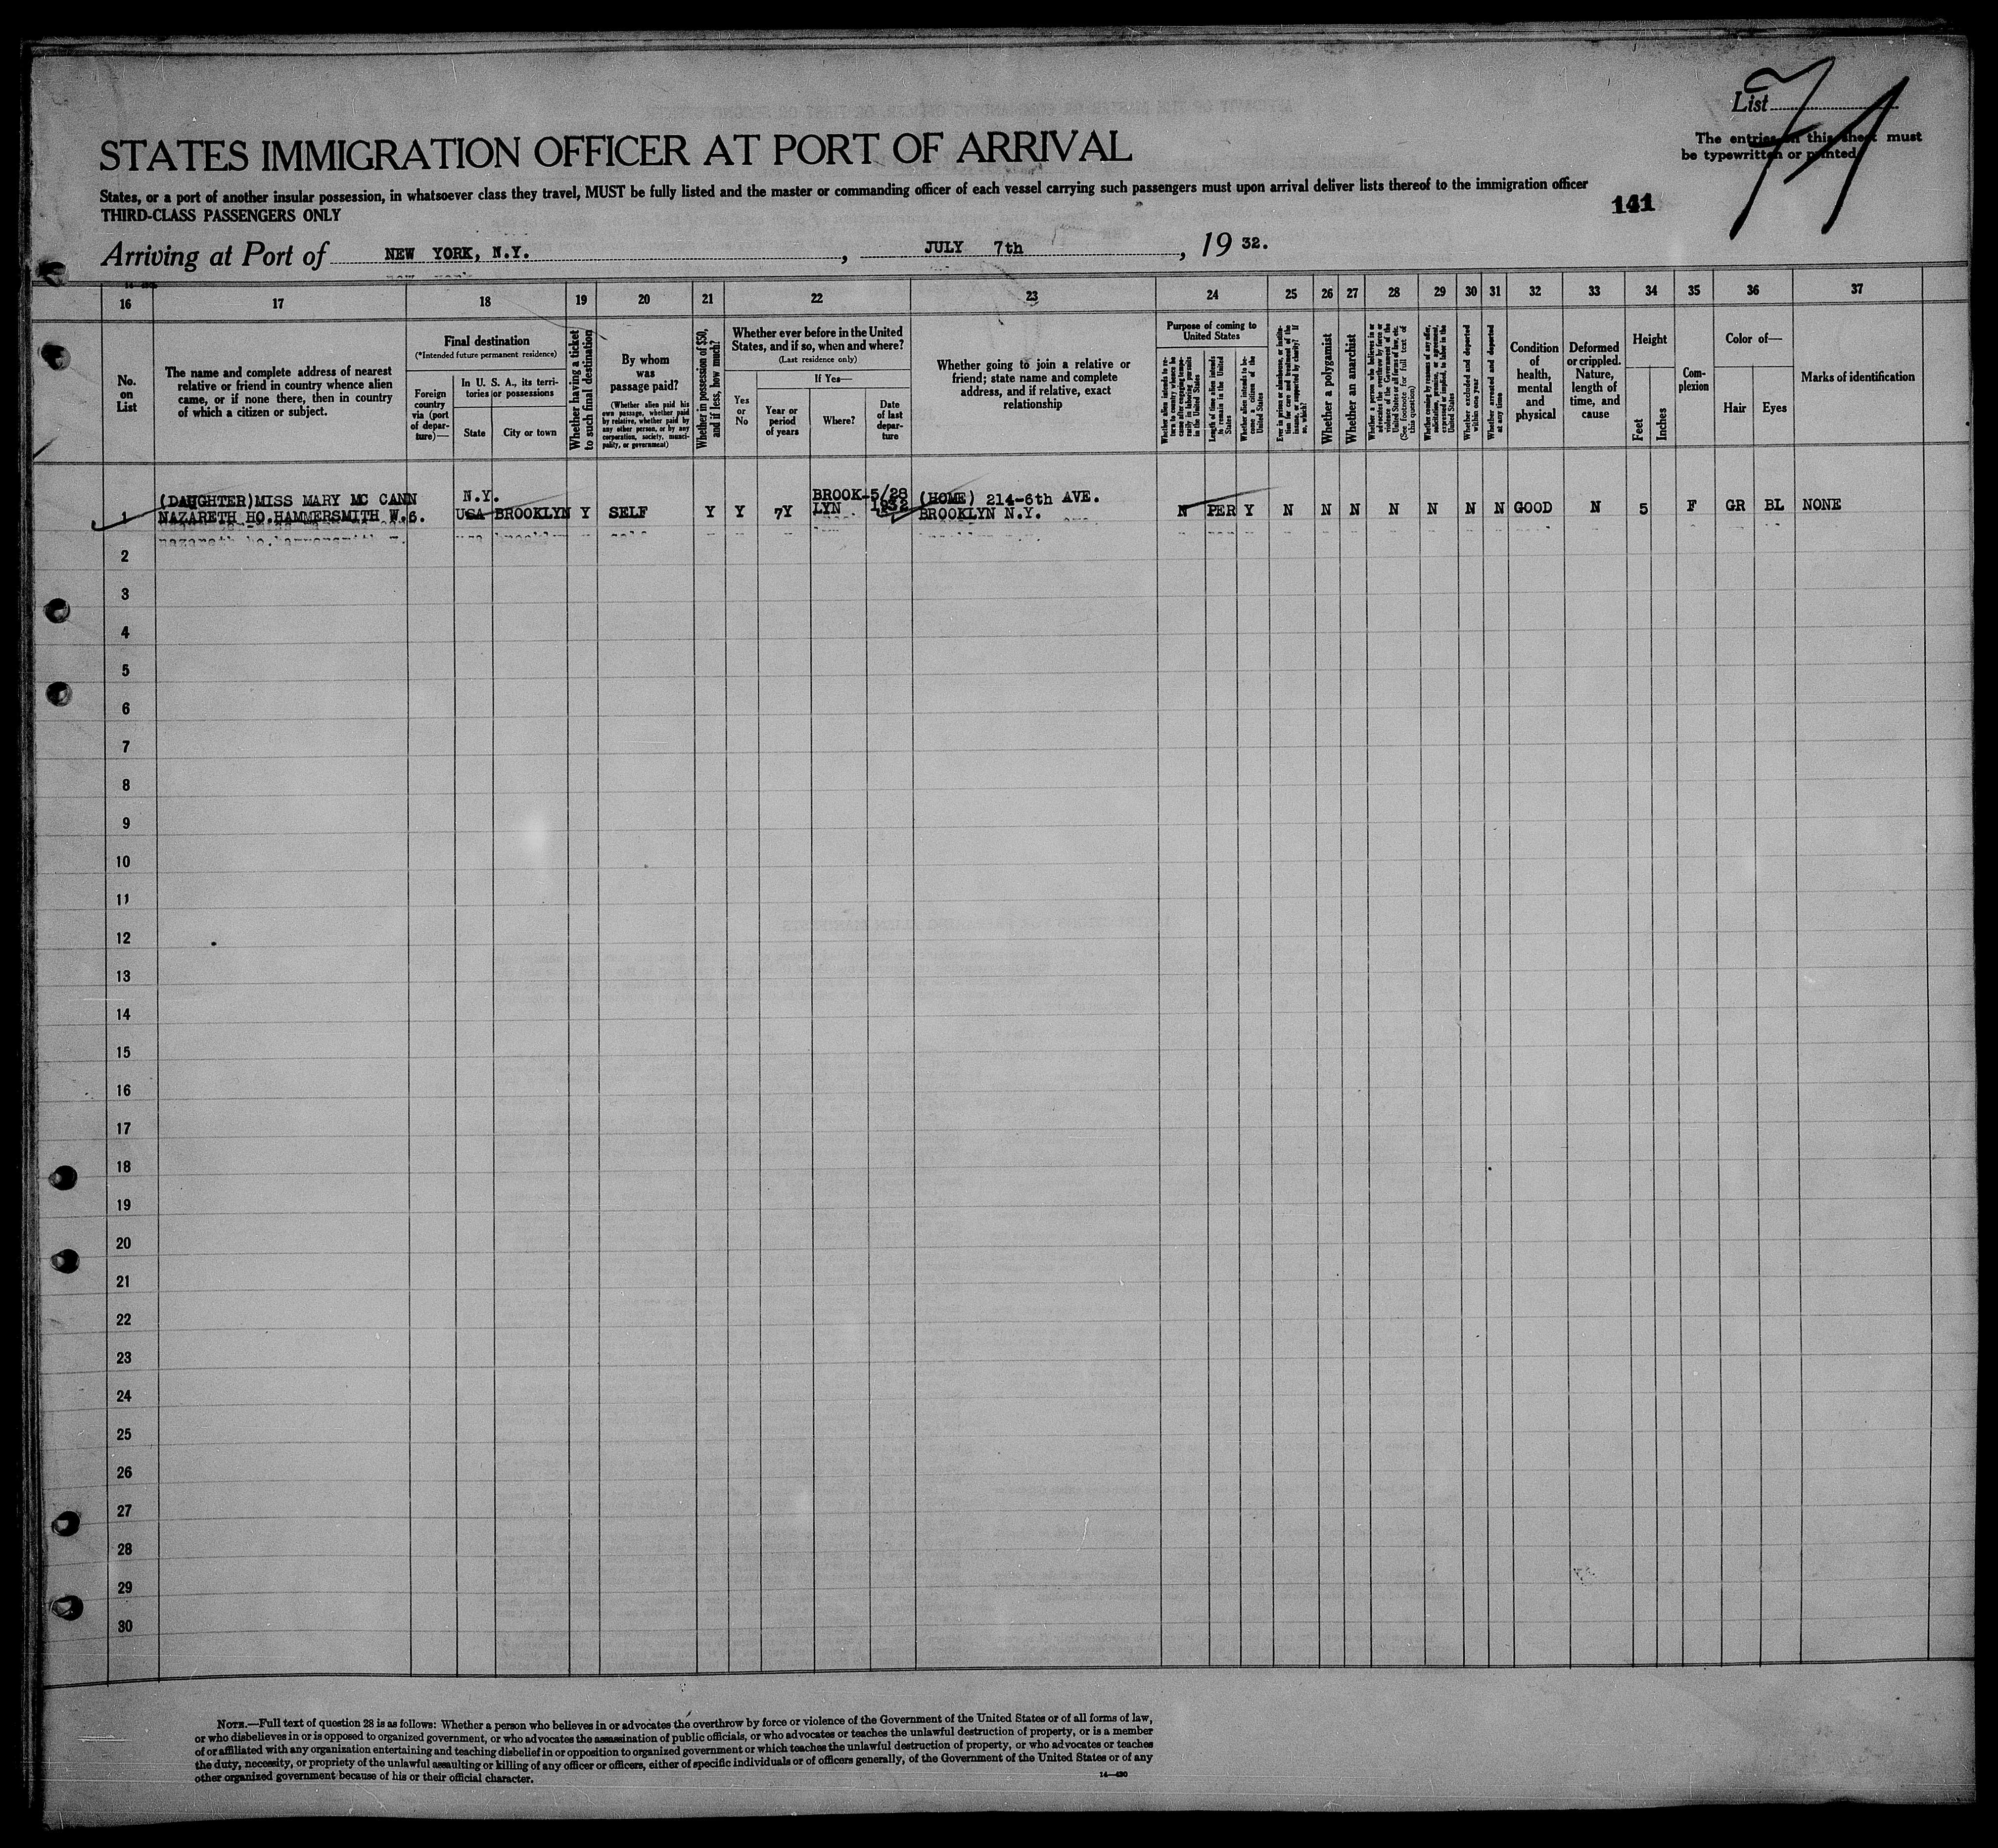 List 71
STATES IMMIGRATION OFFICER AT PORT OF ARRIVAL
The entries on this sheet must
be typewritten or printed
States, or a port of another insular possession, in whatsoever class they travel, MUST be fully listed and the master or commanding officer of each vessel carrying such passengers must upon arrival deliver lists thereof to the immigration officer
THIRD-CLASS PASSENGERS ONLY
141
Arriving at Port of NEW YORK, N.Y. , JULY 7th , 19 32.
16 17 18 19 20 21 22 23 24 25 26 27 28 29 30 31 32 33 34 35 36 37
No.
on
List
The name and complete address of nearest
relative or friend in country whence alien
came, or if none there, then in country
of which a citizen or subject.
Final destination
(*Intended future permanent residence)
Foreign
country
via (port
of depar-
ture)—
In U. S. A., its terri-
tories or possessions
State
City or town
Whether having a ticket
to such final destination
By whom
was
passage paid?
(Whether alien paid his
own passage, whether paid
by relative, whether paid by
any other person, or by any
corporation, society, munici-
pality, or government)
Whether in possession of $50,
and if less, how much?
Whether ever before in the United
States, and if so, when and where?
(Last residence only)
Yes
or
No
If Yes—
Year or
period
of years
Where?
Date
of last
depar-
ture
Whether going to join a relative or
friend; state name and complete
address, and if relative, exact
relationship
Purpose of coming to
United States
Whether alien intends to re-
turn to country whence he
came after engaging tempo-
rarily in laboring pursuits
in the United States
Length of time alien intends
to remain in the United
States
Whether alien intends to be-
come a citizen of the
United States
Ever in prison or almshouse, or institu-
tion for care and treatment of the
insane, or supported by charity? If
so, which?
Whether a polygamist
Whether an anarchist
Whether a person who believes in or
advocates the overthrow by force or
violence of the Government of the
United States or all forms of law, etc.
(See footnote for full text of
this question)
Whether coming by reason of any offer,
solicitation, promise, or agreement,
expressed or implied, to labor in the
United States
Whether excluded and deported
within one year
Whether arrested and deported
at any time
Condition
of
health,
mental
and
physical
Deformed
or crippled.
Nature,
length of
time, and
cause
Height
Feet
Inches
Com-
plexion
Color of—
Hair
Eyes
Marks of identification
(DAUGHTER)MISS MARY MC CANN N.Y. BROOK- 5/28 (HOME) 214-6th AVE.
1 NAZARETH HO.HAMMERSMITH W.6. USA BROOKLYN Y SELF Y Y 7Y LYN 1932 BROOKLYN N.Y. N PER Y N N N N N N N GOOD N 5 F GR BL NONE
2
3
4
5
6
7
8
9
10
11
12
13
14
15
16
17
18
19
20
21
22
23
24
25
26
27
28
29
30
NOTE.—Full text of question 28 is as follows: Whether a person who believes in or advocates the overthrow by force or violence of the Government of the United States or of all forms of law,
or who disbelieves in or is opposed to organized government, or who advocates the assassination of public officials, or who advocates or teaches the unlawful destruction of property, or is a member
of or affiliated with any organization entertaining and teaching disbelief in or opposition to organized government or which teaches the unlawful destruction of property, or who advocates or teaches
the duty, necessity, or propriety of the unlawful assaulting or killing of any officer or officers, either of specific individuals or of officers generally, of the Government of the United States or of any
other organized government because of his or their official character.
14—430